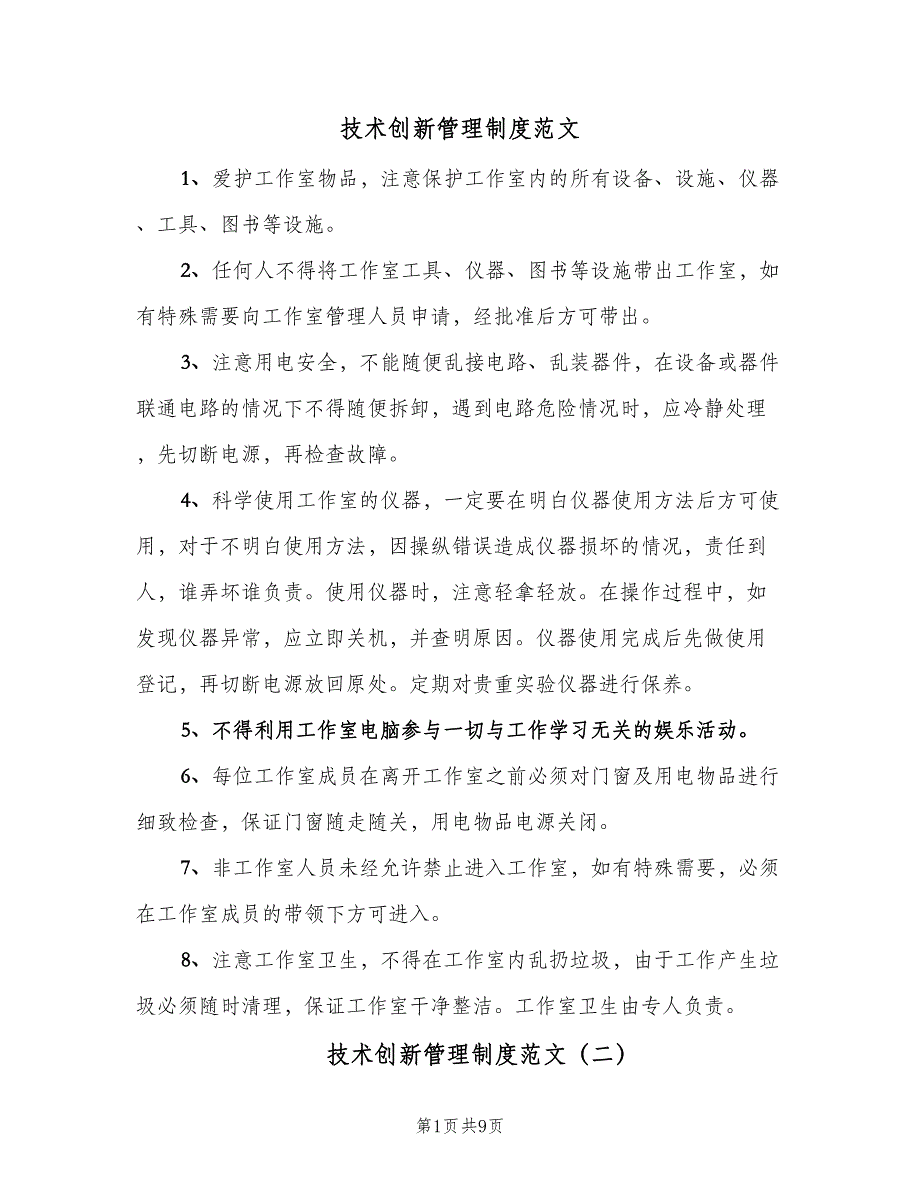 技术创新管理制度范文
1、爱护工作室物品，注意保护工作室内的所有设备、设施、仪器
、工具、图书等设施。
2、任何人不得将工作室工具、仪器、图书等设施带出工作室，如
有特殊需要向工作室管理人员申请，经批准后方可带出。
3、注意用电安全，不能随便乱接电路、乱装器件，在设备或器件
联通电路的情况下不得随便拆卸，遇到电路危险情况时，应冷静处理
，先切断电源，再检查故障。
4、科学使用工作室的仪器，一定要在明白仪器使用方法后方可使
用，对于不明白使用方法，因操纵错误造成仪器损坏的情况，责任到
人，谁弄坏谁负责。使用仪器时，注意轻拿轻放。在操作过程中，如
发现仪器异常，应立即关机，并查明原因。仪器使用完成后先做使用
登记，再切断电源放回原处。定期对贵重实验仪器进行保养。
5、不得利用工作室电脑参与一切与工作学习无关的娱乐活动。
6、每位工作室成员在离开工作室之前必须对门窗及用电物品进行
细致检查，保证门窗随走随关，用电物品电源关闭。
7、非工作室人员未经允许禁止进入工作室，如有特殊需要，必须
在工作室成员的带领下方可进入。
8、注意工作室卫生，不得在工作室内乱扔垃圾，由于工作产生垃
圾必须随时清理，保证工作室干净整洁。工作室卫生由专人负责。
技术创新管理制度范文（二）
第1页共9页